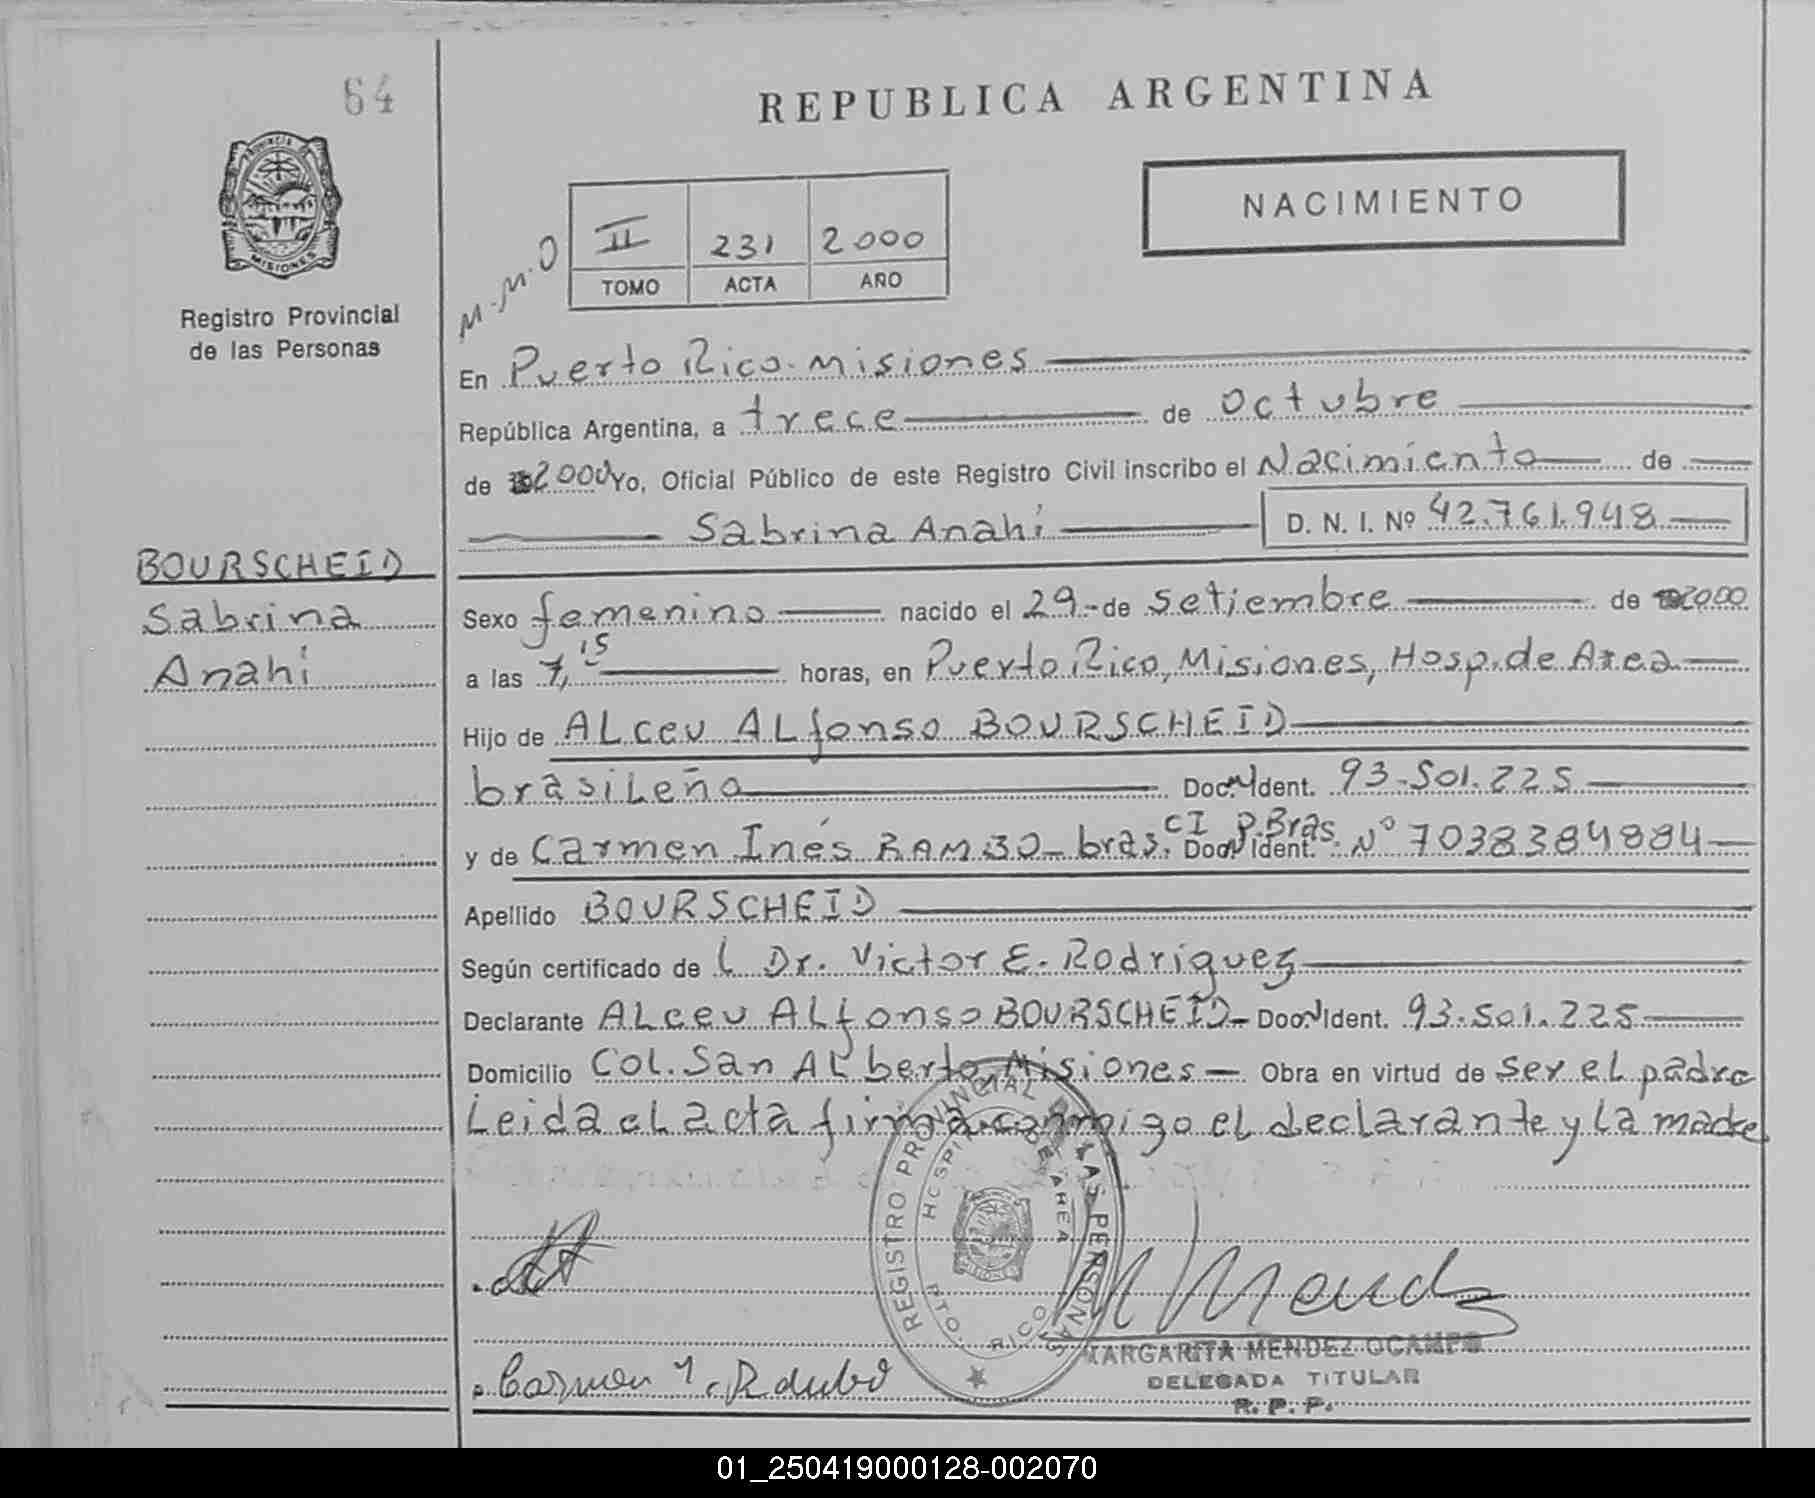 64
REPUBLICA ARGENTINA
NACIMIENTO
II 231 2000
TOMO ACTA AÑO
M.M.O
PROVINCIA DE
MISIONES
Registro Provincial
de las Personas
En Puerto Rico. Misiones
República Argentina, a trece de Octubre
de 2000 Yo, Oficial Público de este Registro Civil inscribo el Nacimiento de
Sabrina Anahí D. N. I. Nº 42.761.948
BOURSCHEID
Sabrina
Anahí
Sexo femenino nacido el 29 de Setiembre de 2000
a las 7,15 horas, en Puerto Rico, Misiones, Hosp. de Area
Hijo de ALceu ALfonso BOURSCHEID
brasiLeña Doc. N Ident. 93.501.225
y de Carmen Inés RAMBO bras. CI P. Bras. Doc. N Ident. Nº 7038384884
Apellido BOURSCHEID
Según certificado de L Dr. Victor E. Rodriguez
Declarante ALceu ALfonso BOURSCHEID Doc. N Ident. 93.501.225
Domicilio Col. San ALberto Misiones Obra en virtud de ser eL padre
Leida eL acta firma conmigo eL declarante y La madre
REGISTRO PROVINCIAL DE LAS PERSONAS
HOSPITAL DE AREA
PTO. RICO
MISIONES
M Mendz
MARGARITA MENDEZ OCAMPO
DELEGADA TITULAR
R. P. P.
Carmen I. Rambo
01_250419000128-002070